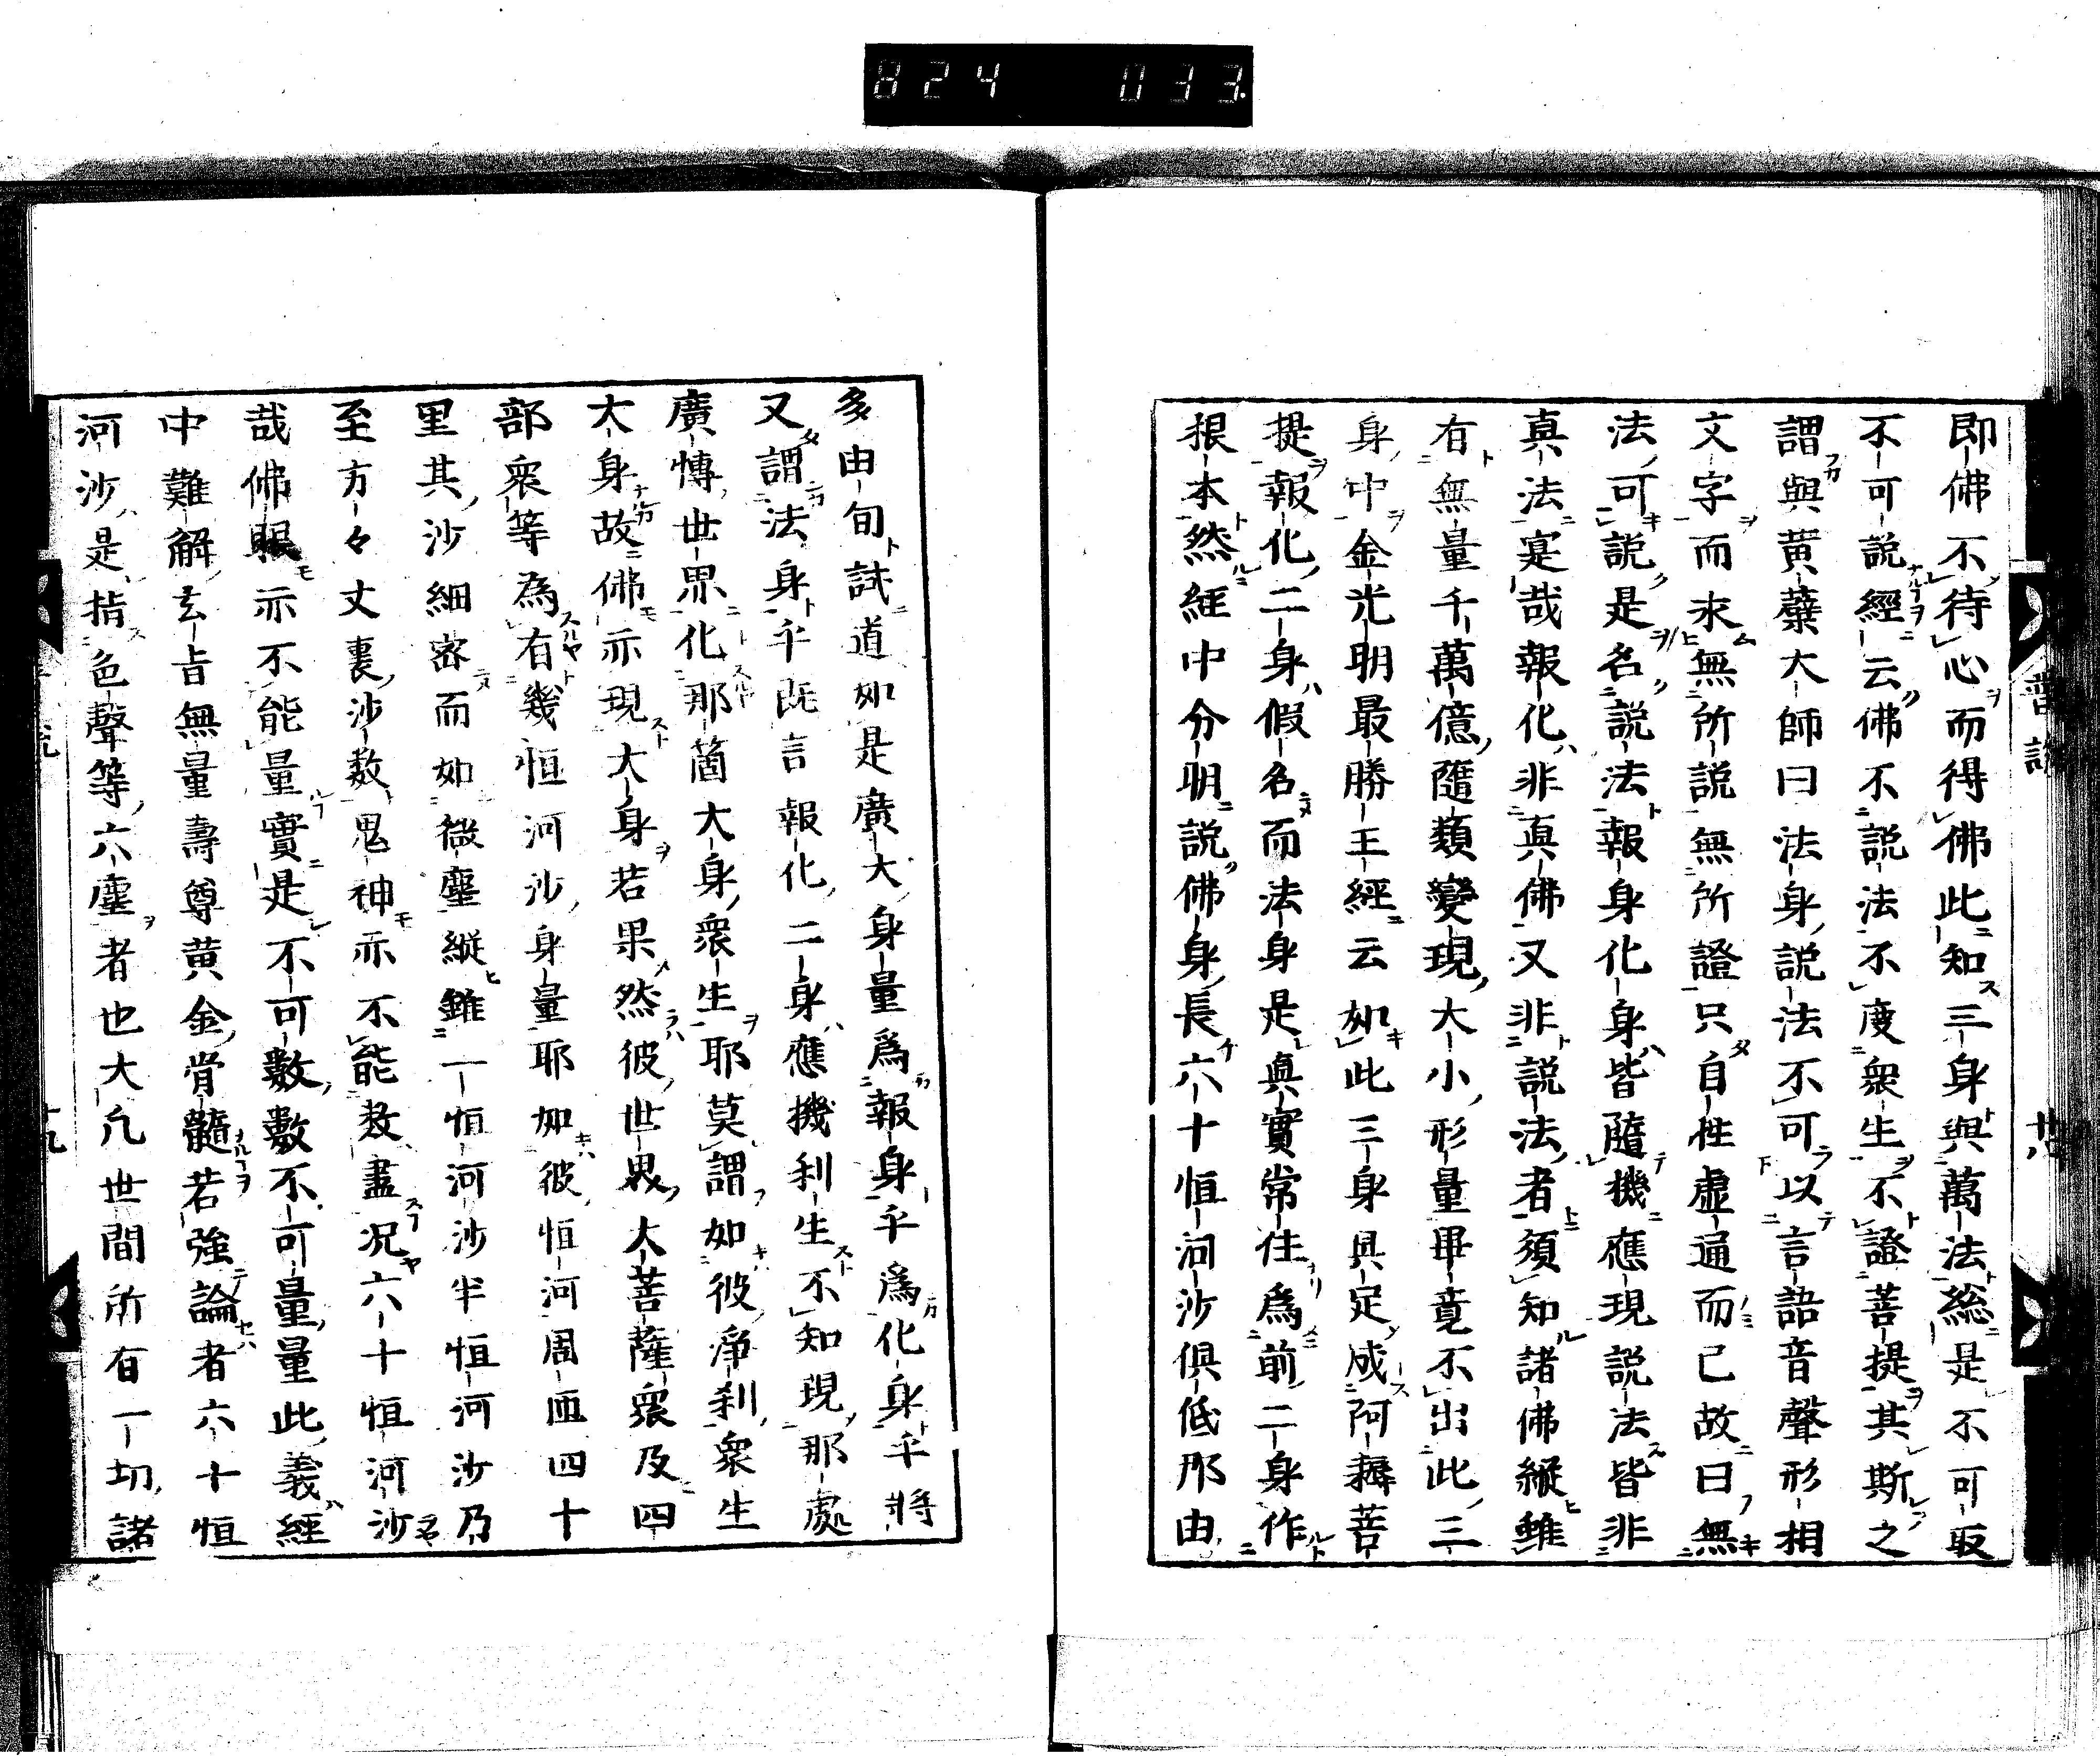 824 033
即佛不待心而得佛此知三身與萬法総是不可取
不可説經云佛不説法不度衆生不證菩提其斯之
謂與黄蘗大師曰法身説法不可以言語音聲形相
文字而求無所説無所證只自性虚通而已故曰無
法可説是名説法報身化身皆隨機應現説法皆非
真法寔哉報化非真佛又非説法者須知諸佛縱雖
有無量千萬億隨類變現大小形量畢竟不出此三
身中金光明最勝王經云如此三身具足成阿耨菩
提報化二身假名而法身是真實常住爲前二身作
根本然經中分明説佛身長六十恒河沙俱低那由
多由旬試道如是廣大身量爲報身乎爲化身乎將
又謂法身乎既言報化二身應機利生不知現那處
廣慱世界化那箇大身衆生耶莫謂如彼淨刹衆生
大身故佛亦現大身若果然彼世界大菩薩衆及四
部衆等為有幾恒河沙身量耶如彼恒河周匝四十
里其沙細宻而如微塵縱雖一恒河沙半恒河沙乃
至方々丈裏沙数鬼神亦不能数盡况六十恒河沙
哉佛眼亦不能量實是不可數數不可量量此義經
中難解玄旨無量壽尊黄金骨髓若強論者六十恒
河沙是指色聲等六塵者也大凡世間所有一切諸